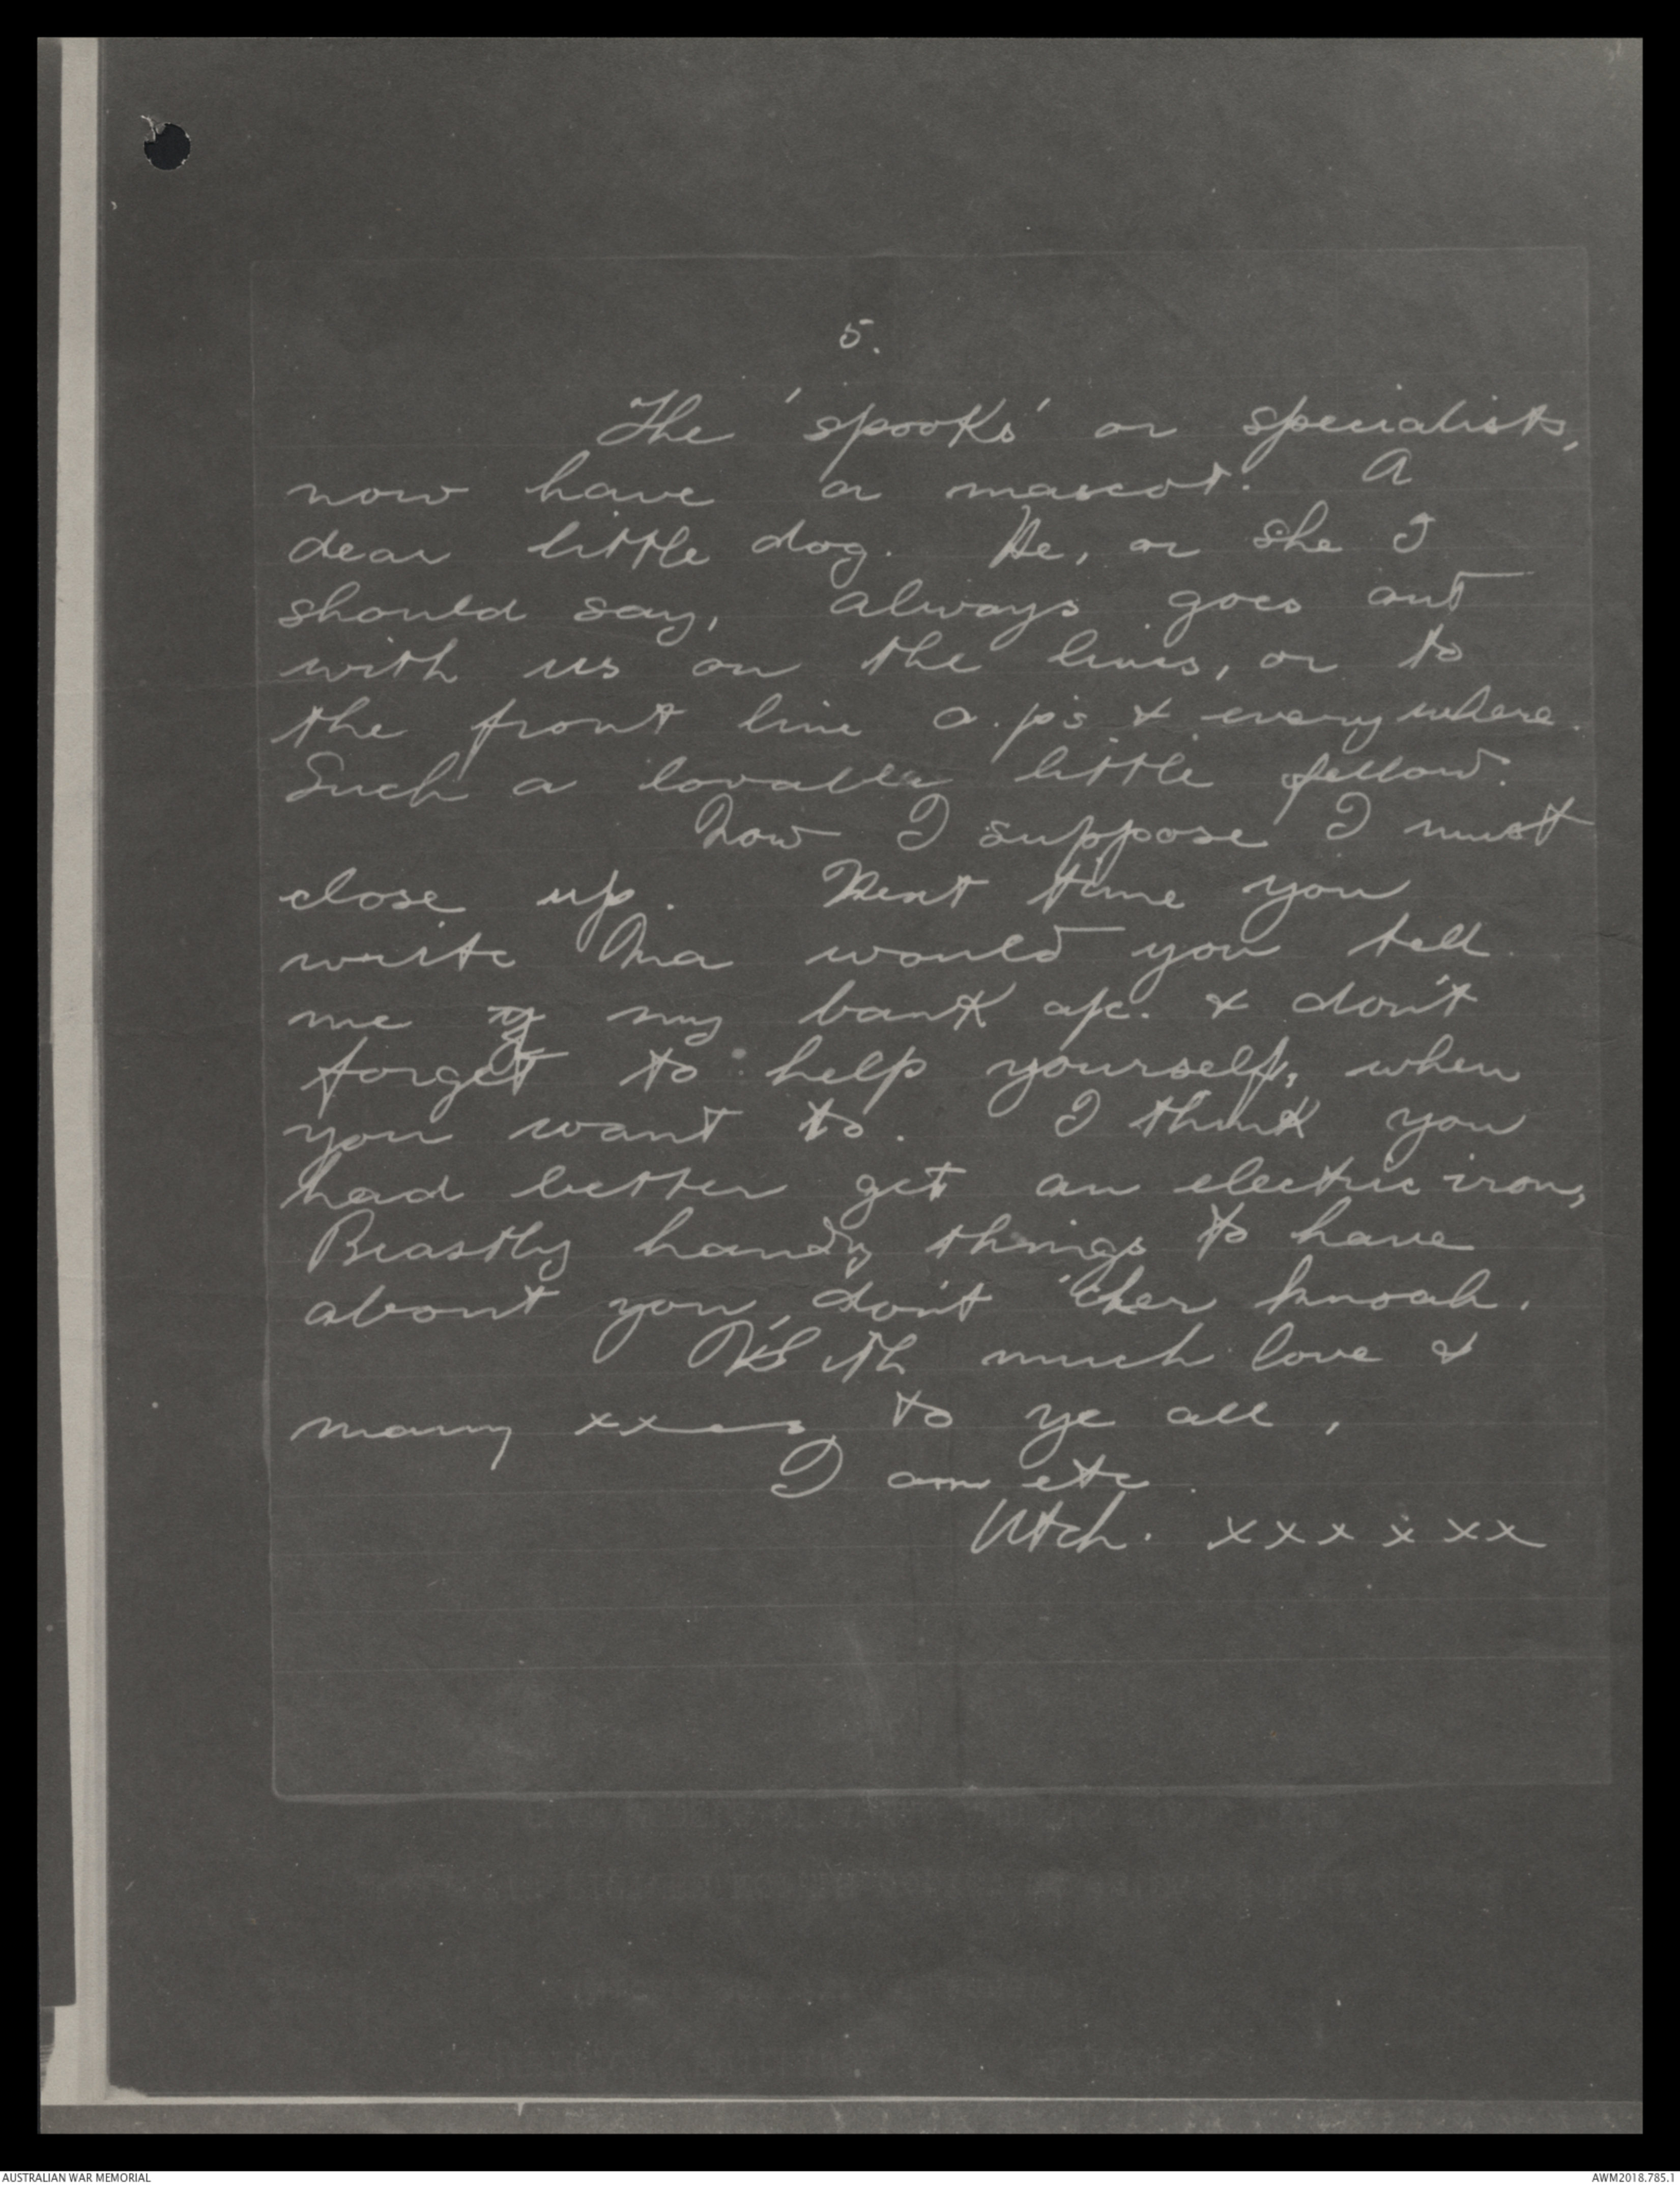 5.
The 'spooks' or specialists,
now have a mascot. A
dear little dog. He, or she I
should say, always goes out
with us on the lines, or to
the front line o.p's & everywhere.
Such a lovable little fellow.
Now I suppose I must
close up. Next time you
write Ma would you tell
me my bank a/c. & don't
forget to help yourself, when
you want to. I think you
had better get an electric iron,
Beastly handy things to have
about you, don't 'cher knoah.
With much love &
many xxes to ye all,
I am etc.
Utch. xxxxxx
AUSTRALIAN WAR MEMORIAL
AWM2018.785.1